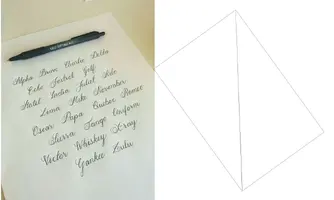 Alpha Bravo Charlie Delta
Echo Foxtrot Golf
Hotel India Juliet Kilo
Lima Mike November
Oscar Papa Quebec Romeo
Sierra Tango Uniform
Vector Whiskey X-ray
Yankee Zulu